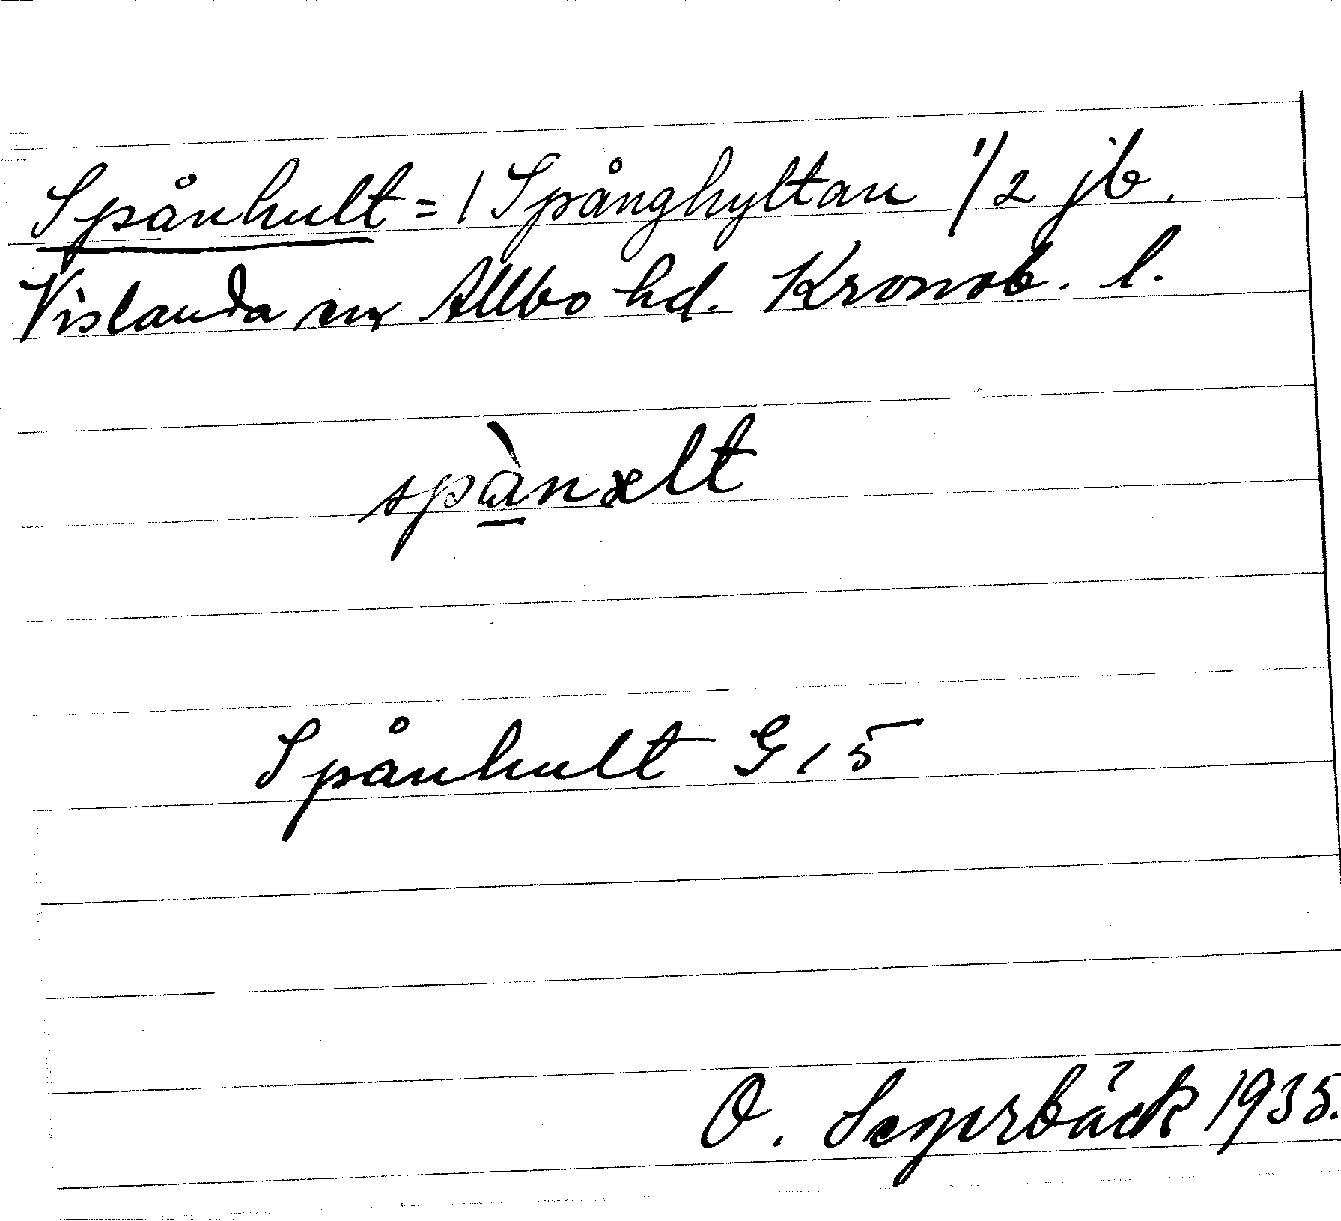 Spånhult = / Spånghyltan 1/2 jb.
Vislanda sn Allbo hd. Kronob. l.
spànəlt
Spånhult G 15
O. Segerbäck 1935.